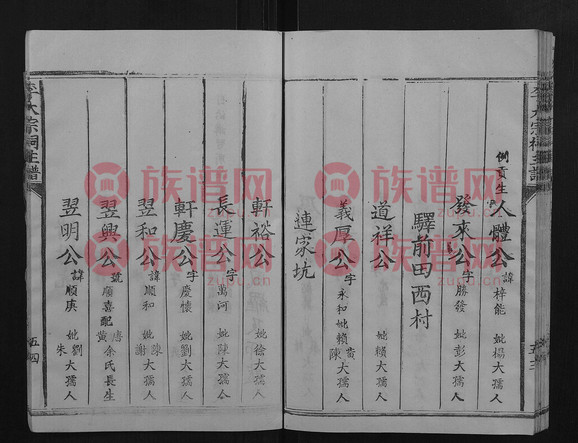 例貢生
人體公 諱梓能 妣楊大孺人
發來公 字勝發 妣彭大孺人
驛前田西村
道祥公 妣賴大孺人
義厚公 字永和 妣賴黃陳大孺人
連家坑
五三
李大宗祠主譜
軒裕公 妣徐大孺人
長運公 字萬河 妣陳大孺人
軒慶公 字慶懷 妣劉大孺人
翌和公 諱順和 妣陳謝大孺人
翌興公 號廣喜 配唐黃余氏長生
翌明公 諱順庚 妣劉朱大孺人
五四
李大宗祠主譜
族谱网
zupu.cn
族谱网
zupu.cn
族谱网
zupu.cn
族谱网
zupu.cn